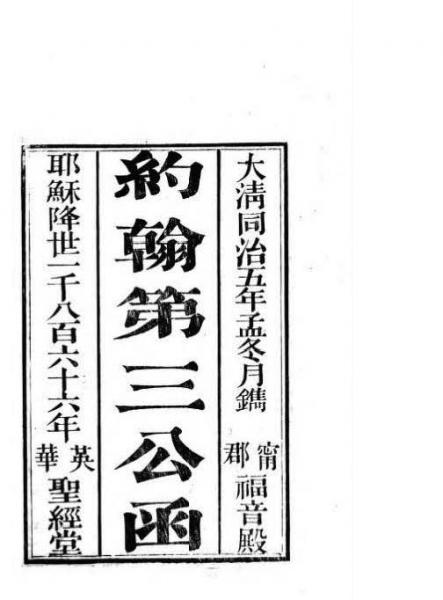 大淸同治五年孟冬月鐫
甯郡福音殿
約翰第三公函
耶穌降世一千八百六十六年
英華聖經堂